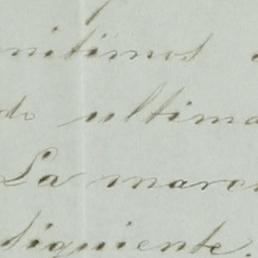 nitimos
do ultima
La marc
siguiente.